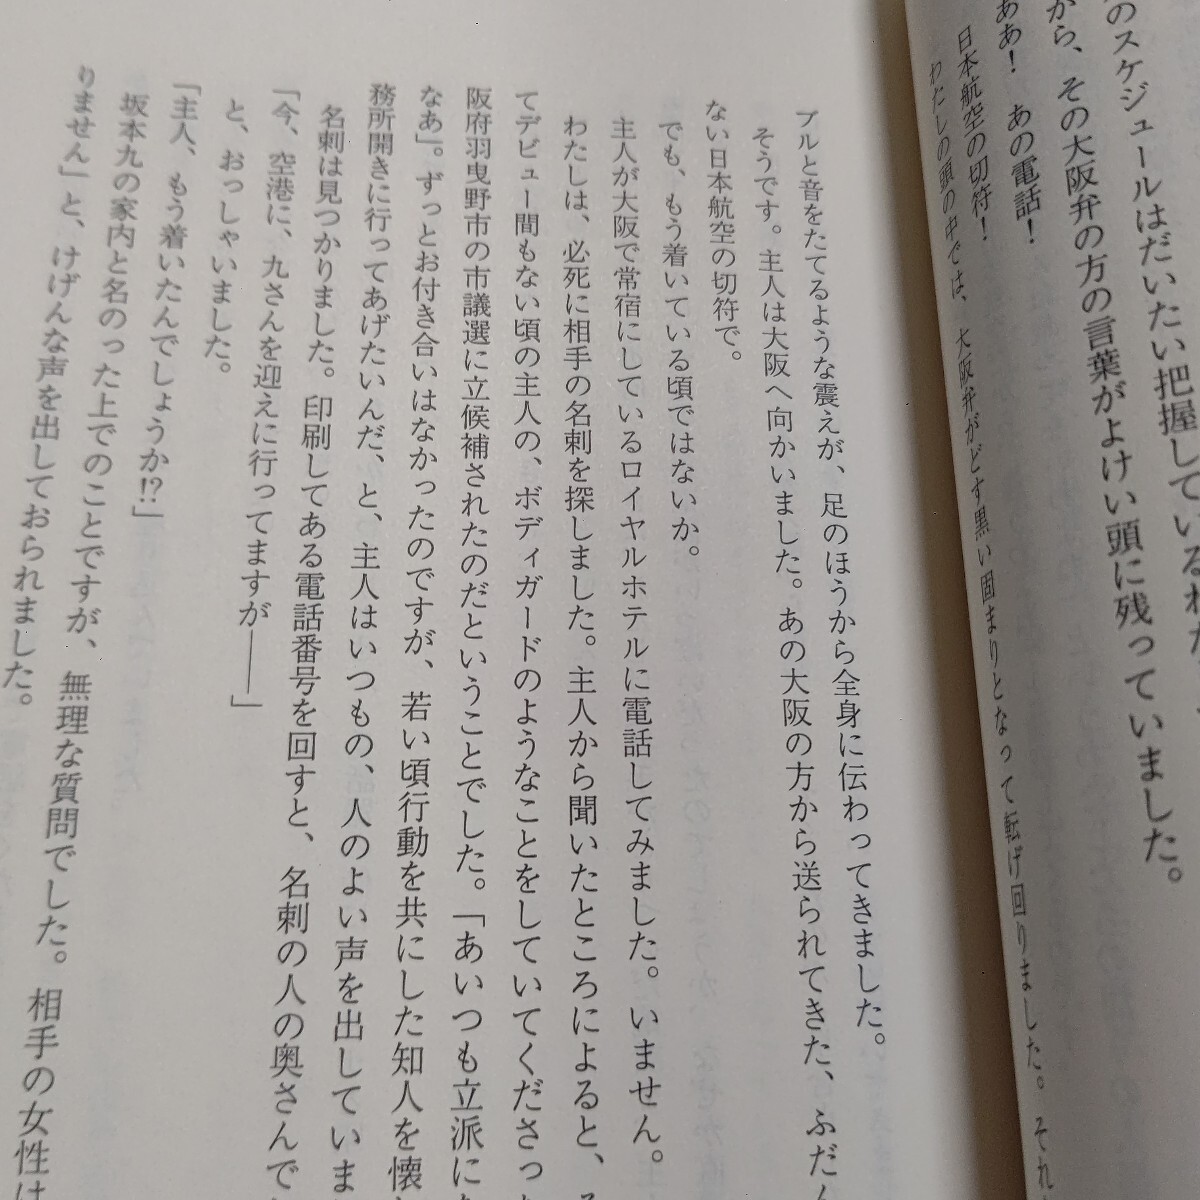 のスケジュールはだいたい把握しているわた
から、その大阪弁の方の言葉がよけい頭に残っていました。
ああ！　あの電話！
日本航空の切符！
わたしの頭の中では、大阪弁がどす黒い固まりとなって転げ回りました。それ
ブルと音をたてるような震えが、足のほうから全身に伝わってきました。
そうです。主人は大阪へ向かいました。あの大阪の方から送られてきた、ふだん
ない日本航空の切符で。
でも、もう着いている頃ではないか。
主人が大阪で常宿にしているロイヤルホテルに電話してみました。いません。
わたしは、必死に相手の名刺を探しました。主人から聞いたところによると、
てデビュー間もない頃の主人の、ボディガードのようなことをしていてくださっ
阪府羽曳野市の市議選に立候補されたのだということでした。「あいつも立派に
なあ」。ずっとお付き合いはなかったのですが、若い頃行動を共にした知人を懐
務所開きに行ってあげたいんだ、と、主人はいつもの、人のよい声を出していま
名刺は見つかりました。印刷してある電話番号を回すと、名刺の人の奥さんで
「今、空港に、九さんを迎えに行ってますが――」
と、おっしゃいました。
「主人、もう着いたんでしょうか!?」
坂本九の家内と名のった上でのことですが、無理な質問でした。相手の女性は
りません」と、けげんな声を出しておられました。